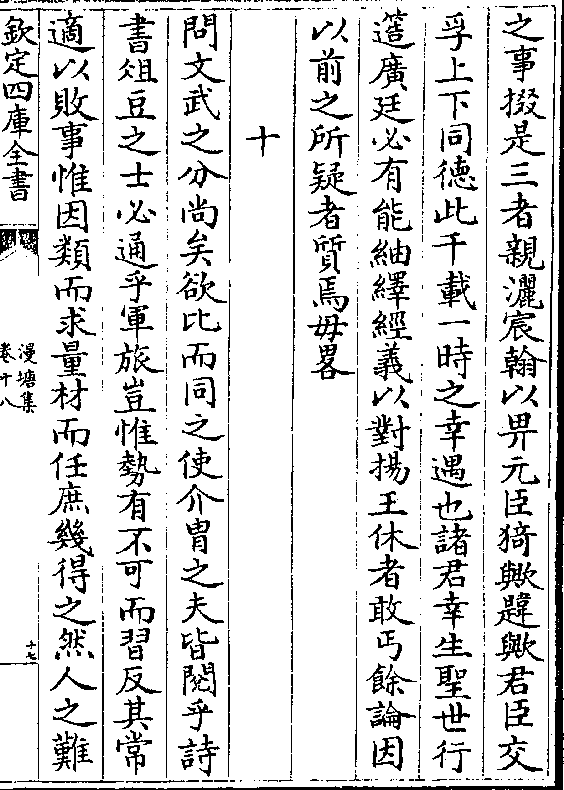 之事掇是三者親灑宸翰以畀元臣猗歟韙歟君臣交
孚上下同德此千載一時之幸遇也諸君幸生聖世行
造廣廷必有能紬繹經義以對揚王休者敢丐餘論因
以前之所疑者質焉毋畧
十
問文武之分尚矣欲比而同之使介胄之夫皆閱乎詩
書俎豆之士必通乎軍旅豈惟勢有不可而習反其常
適以敗事惟因類而求量材而任庶幾得之然人之難
欽定四庫全書
漫塘集
卷十八
十七